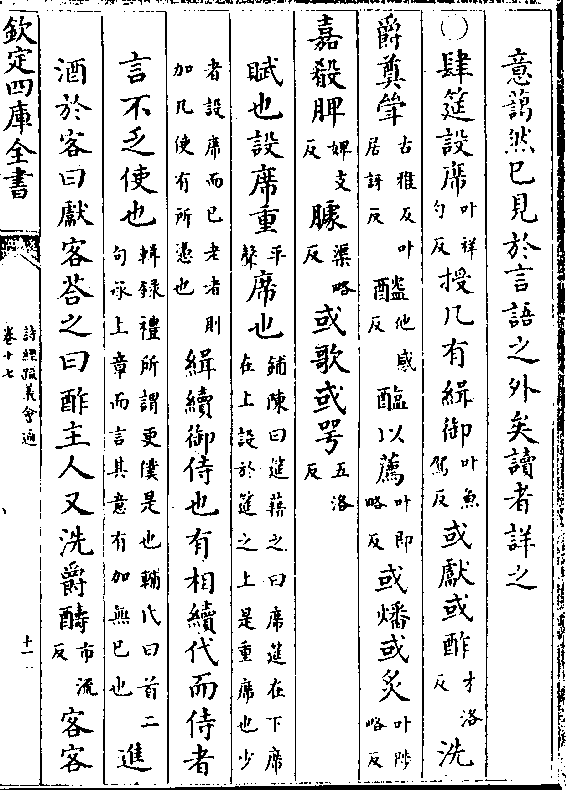 意藹然已見於言語之外矣讀者詳之
○肆筵設席叶祥勺反授几有緝御叶魚駕反或獻或酢才洛反洗
爵奠斝古雅反叶居訝反醓他感反醢以薦叶即略反或燔或炙叶陟略反
嘉殽脾婢支反臄渠略反或歌或咢五洛反
賦也設席重平聲席也鋪陳曰筵藉之曰席筵在下席在上設於筵之上是重席也少
者設席而已老者則加几使有所憑也緝續御侍也有相續代而侍者
言不乏使也輯錄禮所謂更僕是也輔氏曰首二句承上章而言其意有加無已也進
酒於客曰獻客荅之曰酢主人又洗爵醻市流反客客
欽定四庫全書
詩經疏義會通
卷十七
十一